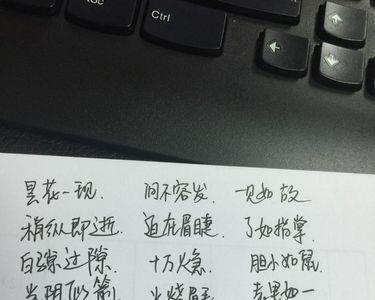 Alt
Ctrl
昙花一现. 间不容发. 一见如故
稍纵即逝. 迫在眉睫. 了如指掌
白驹过隙. 十万火急. 胆小如鼠.
光阴似箭 火烧眉毛 表里如一